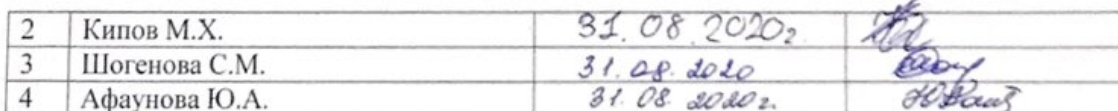 2 Кипов М.Х. 31.08.2020г
3 Шогенова С.М. 31.08.2020
4 Афаунова Ю.А. 31.08.2020г.